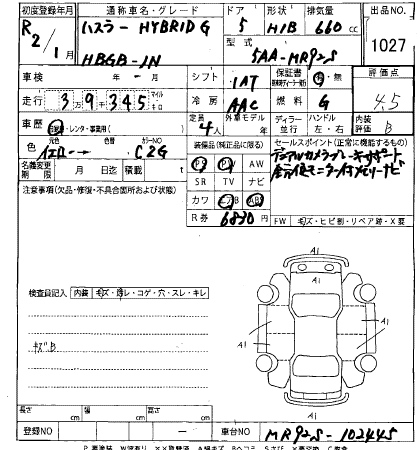 初度登録年月 通称車名・グレード ドア 形状 排気量 出品NO.
R2/1 ハスラー HYBRID G 5 H/B 660cc 1027
HBGB-1N 型式 5AA-MR92S
車検 年 - 月 シフト IAT 保証書 有・無 評価点
走行 39345 マイル km 冷房 AAC 燃料 G 4.5
車歴 自家用・レンタ・事業用( ) 定員 4人 外車モデル 年 ディーラー 並行 ハンドル 左・右 内装評価 B
色 元色 イエロー → 色替 カラーNO C2G
装備品(純正品に限る) セールスポイント(正常に機能するもの)
名義変更期限 月 日迄 積載 t
PS PW AW デュアルカメラブレーキサポート
SR TV ナビ
カワ エアB ABS
R券 6830円
FW キズ・ヒビ割・リペア跡・X要
注意事項(欠品・修復・不具合箇所および状態)
検査員記入 内装 キズ・汚レ・コゲ・穴・スレ・キレ
キズB
A1
A1 A1
A1
長さ cm 幅 cm 高さ cm
登録NO - 車台NO MR92S-102445